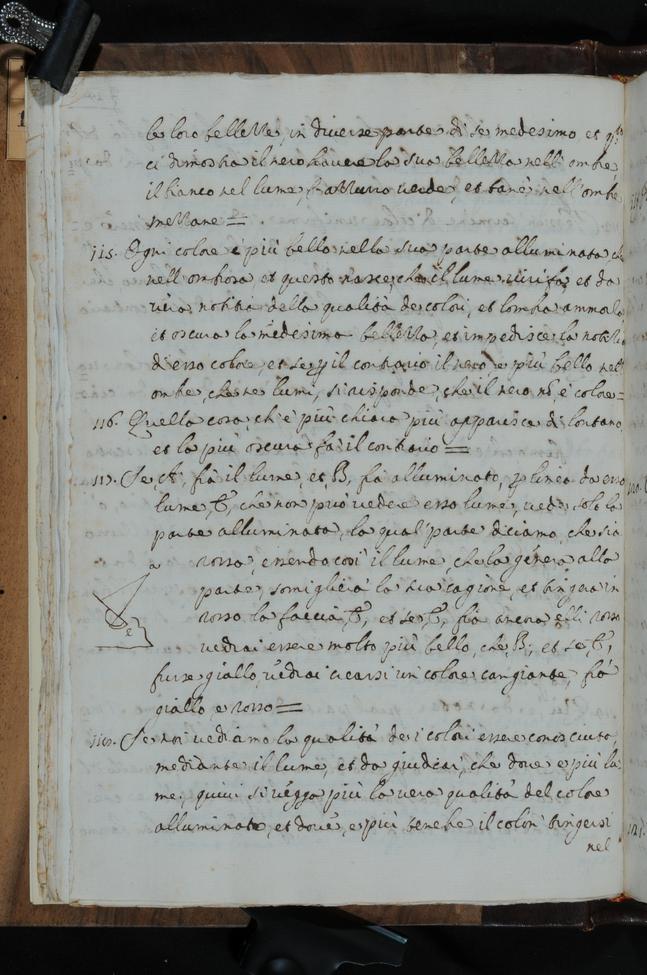 le loro bellezze, in diverse parte di se medesimo, et q.to
ci dimostra il nero havere la sua bellezza nell' ombre,
il bianco nel lume, l'azzurro verde, et tanè nell'ombre
mezzane =
115. Ogni colore è più bello nella sua parte alluminata che
nell'ombra, et questo nasce, che il lume vivifica et da
vera notitia della qualità de colori, et lombra ammorza
et oscura la medesima bellezza, et impedisce la notitia
d'esso colore, et se p il contrario il nero e più bello nell'
ombre, che ne lumi, si risponde, che il nero nō è colore =
116. Quella cosa, ch'è più chiara più apparisce di lontano,
et la più oscura fa il contrario =
117. Se A, fia il lume, et B, fia alluminato, p linea da esso
lume, che non può vedere esso lume, vede, solo la
parte alluminata, la qual parte diciamo, che sia
a rossa, essendo così il lume, che la genera alla
parte, somiglierà la sua cagione, et tingera in
rosso la faccia, et se, fia ancora egli rosso
vedrai essere molto più bello, che B, et se,
fusse giallo, vedrai crearsi un colore cangiante, fra
giallo, e rosso =
118. Se noi vediamo la qualità de i colori essere conosciuta,
mediante il lume, et da giudicar, che dove e più lu
me, quivi si vegga più la vera qualità del colore
alluminato, et dove, e più tenebre il color' tingersi
nel